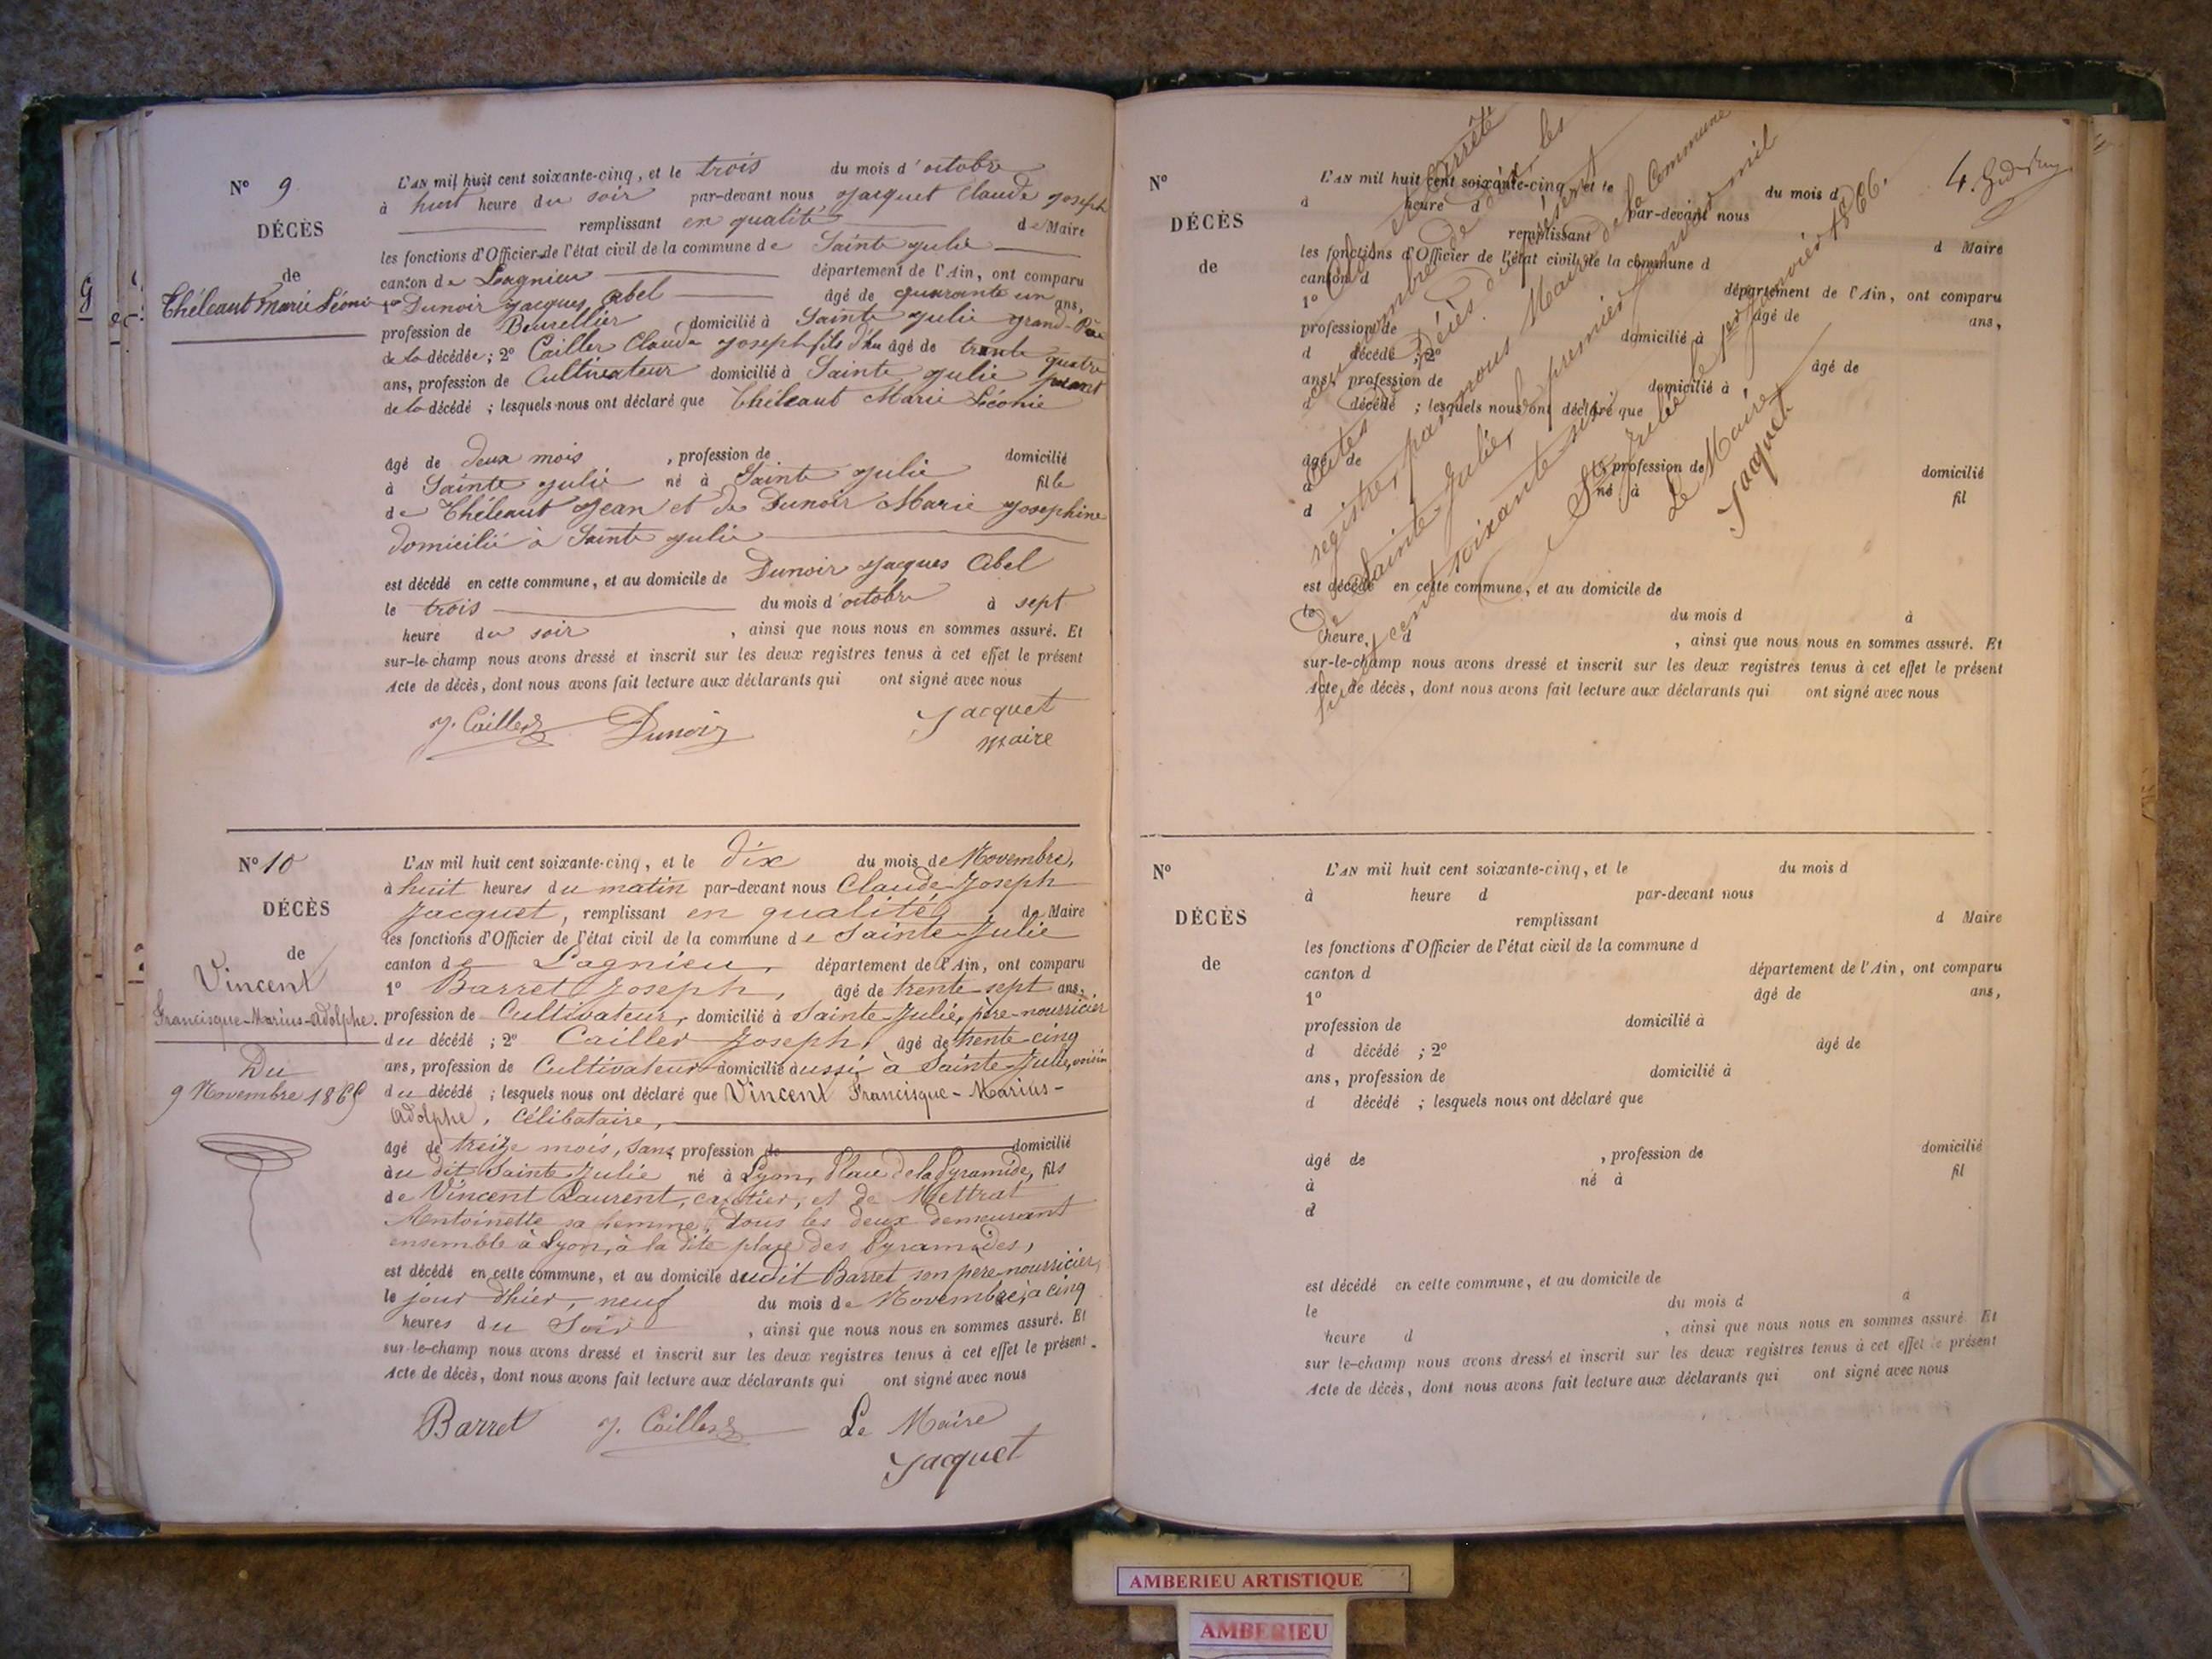 N° 9
DÉCÈS
de
Théleaut Marie Léonie
L'AN mil huit cent soixante-cinq, et le trois du mois d'octobre
à huit heure du soir par-devant nous Jacquet Claude Joseph
remplissant en qualité de Maire
les fonctions d'Officier de l'état civil de la commune de Sainte Julie
canton de Lagnieu département de l'Ain, ont comparu
1° Dunoir Jacques Abel âgé de quarante un ans,
profession de Bourellier domicilié à Sainte Julie grand-Père
de la décédée ; 2° Cailler Claude Joseph fils d'eu âgé de trente quatre
ans, profession de Cultivateur domicilié à Sainte Julie
de la décédé ; lesquels nous ont déclaré que Théleaut Marie Léonie
âgé de deux mois , profession de domicilié
à Sainte Julie né à Sainte Julie fille
de Théleaut Jean et de Dunoir Marie Josephine
domicilié à Sainte Julie
est décédé en cette commune, et au domicile de Dunoir Jacques Abel
le trois du mois d'octobre à sept
heure du soir , ainsi que nous nous en sommes assuré. Et
sur-le-champ nous avons dressé et inscrit sur les deux registres tenus à cet effet le présent
Acte de décès, dont nous avons fait lecture aux déclarants qui ont signé avec nous
J. Cailler Dunoir Jacquet
maire
N° 10
DÉCÈS
de
Vincent
Francisque-Marius-Adolphe.
Du
9 Novembre 1865
L'AN mil huit cent soixante-cinq, et le dix du mois de Novembre,
à huit heures du matin par-devant nous Claude-Joseph
Jacquet, remplissant en qualité de Maire
les fonctions d'Officier de l'état civil de la commune de Sainte-Julie
canton de Lagnieu, département de l'Ain, ont comparu
1° Barret Joseph, âgé de trente sept ans,
profession de Cultivateur, domicilié à Sainte-Julie, père-nourricier
du décédé ; 2° Cailler Joseph, âgé de trente cinq
ans, profession de Cultivateur domicilié aussi à Sainte Julie, voisin
du décédé ; lesquels nous ont déclaré que Vincent Francisque-Marius-
Adolphe, célibataire,
âgé de treize mois, sans profession de domicilié
au dit Sainte Julie né à Lyon, Place de la Pyramide, fils
de Vincent Laurent, cafetier, et de Mettrat
Antoinette sa femme, tous les deux demeurant
ensemble à Lyon, à la dite place des Pyramides,
est décédé en cette commune, et au domicile dudit Barret son père nourricier,
le jour d'hier, neuf du mois de Novembre, à cinq
heures du Soir , ainsi que nous nous en sommes assuré. Et
sur-le-champ nous avons dressé et inscrit sur les deux registres tenus à cet effet le présent
Acte de décès, dont nous avons fait lecture aux déclarants qui ont signé avec nous
Barret J. Cailler Le Maire
Jacquet
4.
N°
DÉCÈS
de
L'AN mil huit cent soixante-cinq, et le du mois d
à heure d par-devant nous
remplissant d Maire
les fonctions d'Officier de l'état civil de la commune d
canton d département de l'Ain, ont comparu
1° âgé de ans,
profession de domicilié à
d décédé ; 2° âgé de
ans, profession de domicilié à
d décédé ; lesquels nous ont déclaré que
âgé de , profession de domicilié
à né à fil
d
est décédé en cette commune, et au domicile de
le du mois d à
heure d , ainsi que nous nous en sommes assuré. Et
sur-le-champ nous avons dressé et inscrit sur les deux registres tenus à cet effet le présent
Acte de décès, dont nous avons fait lecture aux déclarants qui ont signé avec nous
Clos et arrêté
au nombre de dix les
actes de Décès du présent
registre, par nous Maire de la Commune
de Sainte Julie, le premier Janvier mil
huit cent soixante six.
Ste Julie le 1er Janvier 1866.
Le Maire
Jacquet
N°
DÉCÈS
de
L'AN mil huit cent soixante-cinq, et le du mois d
à heure d par-devant nous
remplissant d Maire
les fonctions d'Officier de l'état civil de la commune d
canton d département de l'Ain, ont comparu
1° âgé de ans,
profession de domicilié à
d décédé ; 2° âgé de
ans, profession de domicilié à
d décédé ; lesquels nous ont déclaré que
âgé de , profession de domicilié
à né à fil
d
est décédé en cette commune, et au domicile de
le du mois d à
heure d , ainsi que nous nous en sommes assuré Et
sur le-champ nous avons dressé et inscrit sur les deux registres tenus à cet effet le présent
Acte de décès, dont nous avons fait lecture aux déclarants qui ont signé avec nous
AMBERIEU ARTISTIQUE
AMBERIEU